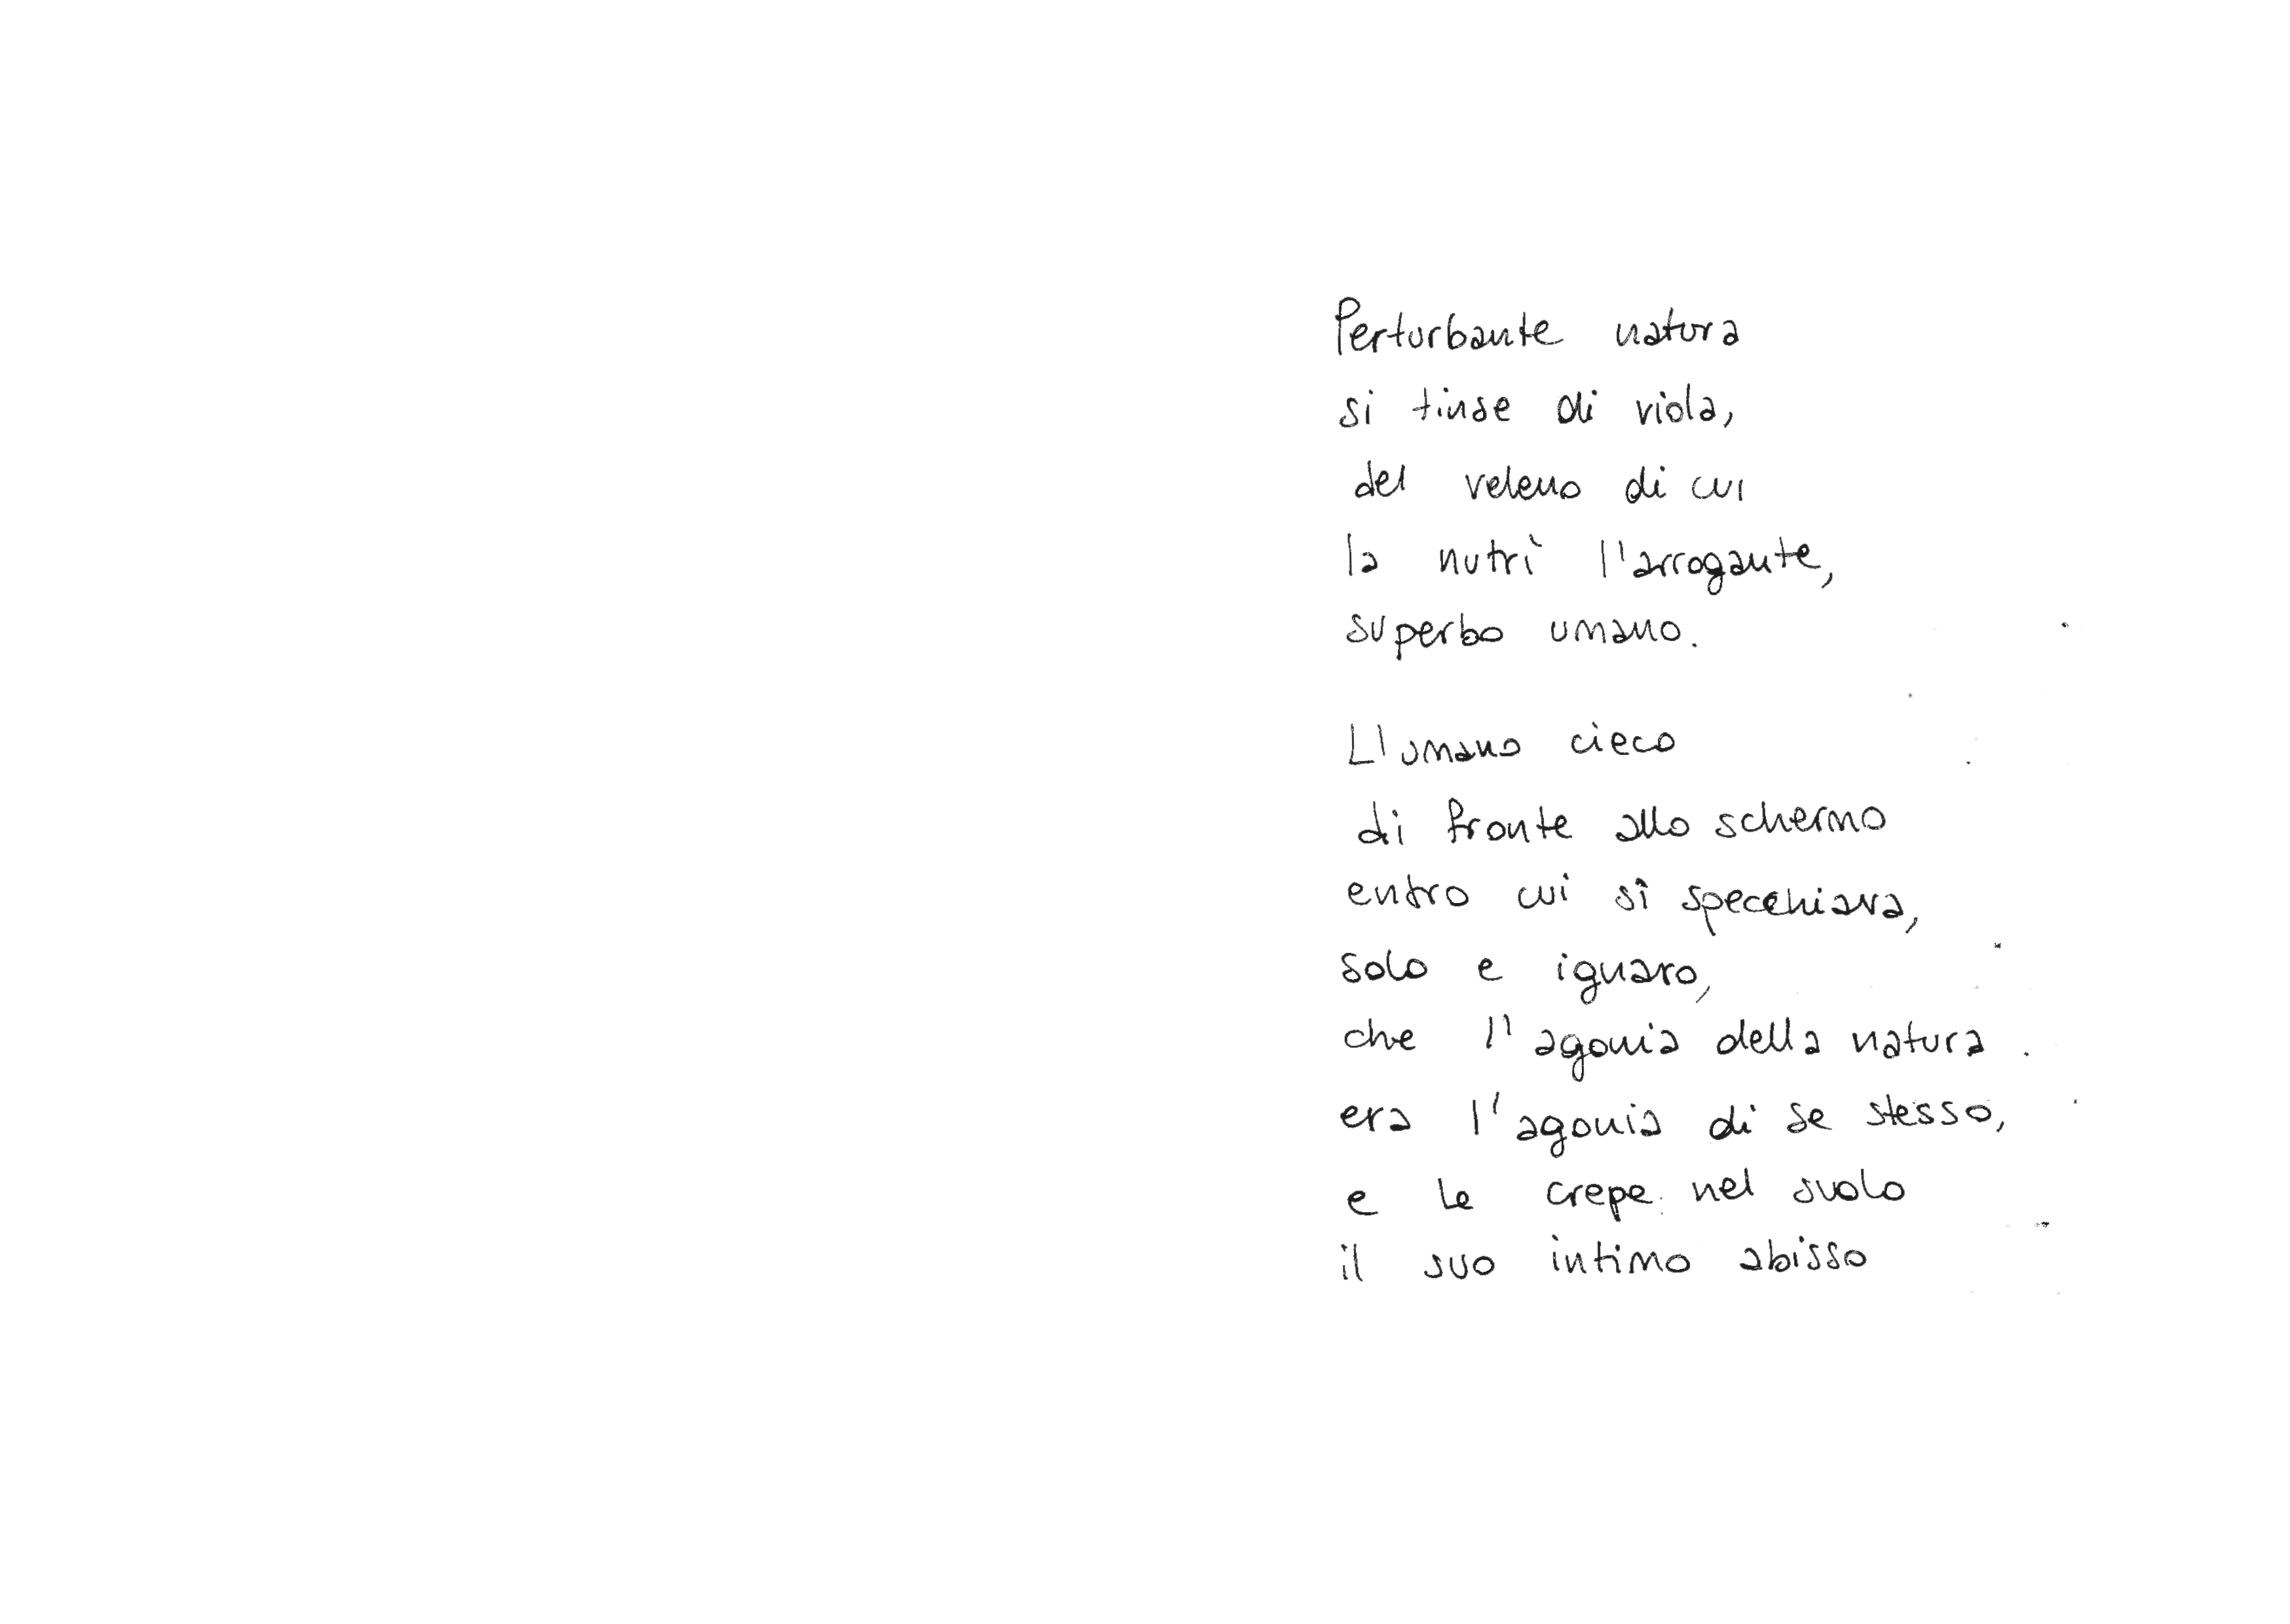 Perturbante natura
si tinse di viola,
del veleno di cui
la nutrì l'arrogante,
superbo umano.
L'umano cieco
di fronte allo schermo
entro cui si specchiava,
solo e ignaro,
che l'agonia della natura
era l'agonia di se stesso,
e le crepe nel suolo
il suo intimo abisso